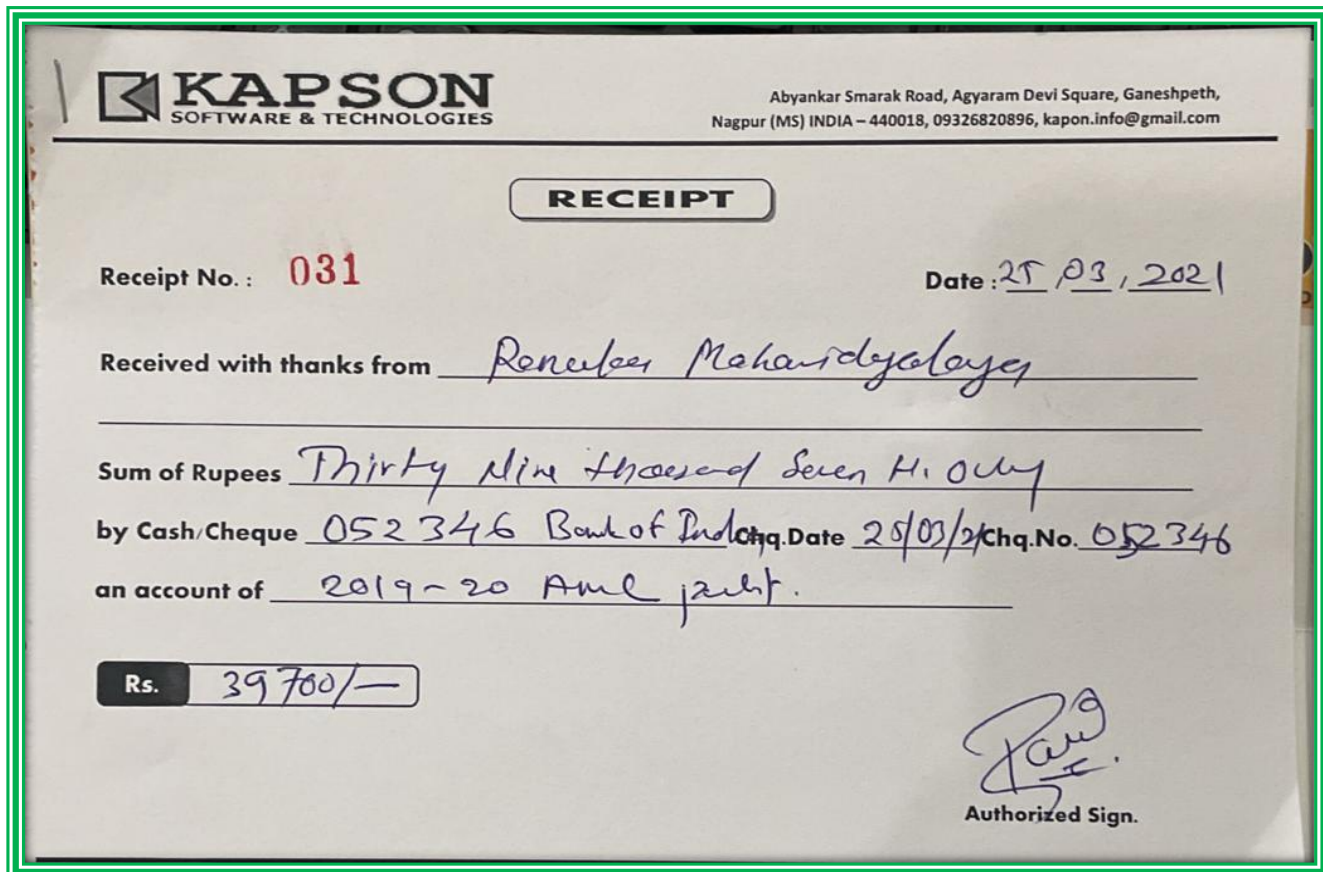 KAPSON
SOFTWARE & TECHNOLOGIES
Abyankar Smarak Road, Agyaram Devi Square, Ganeshpeth,
Nagpur (MS) INDIA – 440018, 09326820896, kapon.info@gmail.com
RECEIPT
Receipt No. : 031
Date : 25, 03, 2021
Received with thanks from Renuka Mahavidyalaya
Sum of Rupees Thirty Nine thousand Seven H. Only
by Cash/Cheque 052346 Bank of India Chq.Date 25/03/21 Chq.No. 052346
an account of 2019-20
Rs. 39700/-
Authorized Sign.